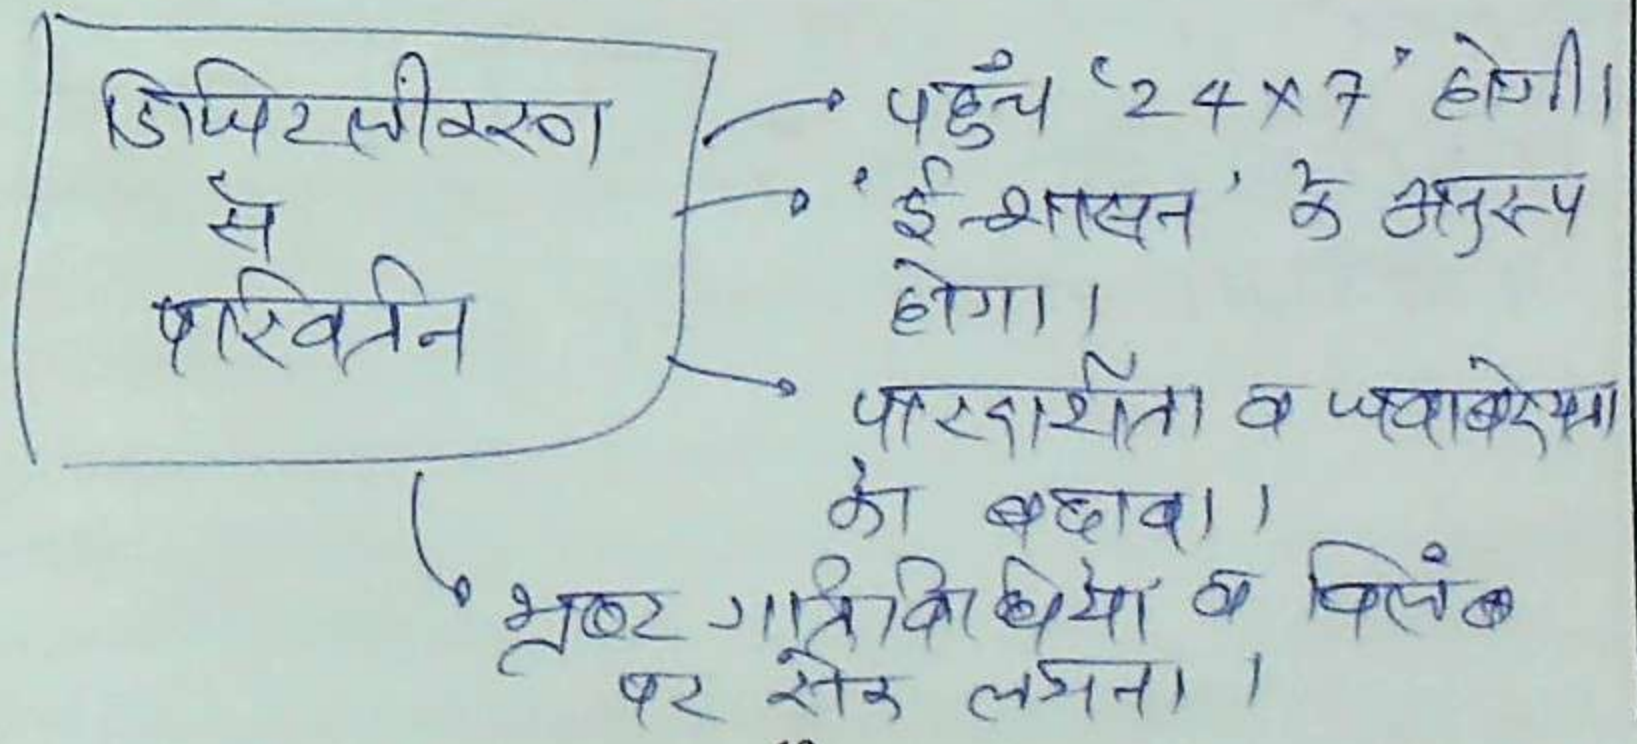 डिजिटलीकरण
से
परिवर्तन
पहुँच '24×7' होगी।
'ई-शासन' के अनुरूप
होगा।
पारदर्शिता व जवाबदेयता
को बढ़ावा।
भ्रष्ट गतिविधियों व विलंब
पर रोक लगना।